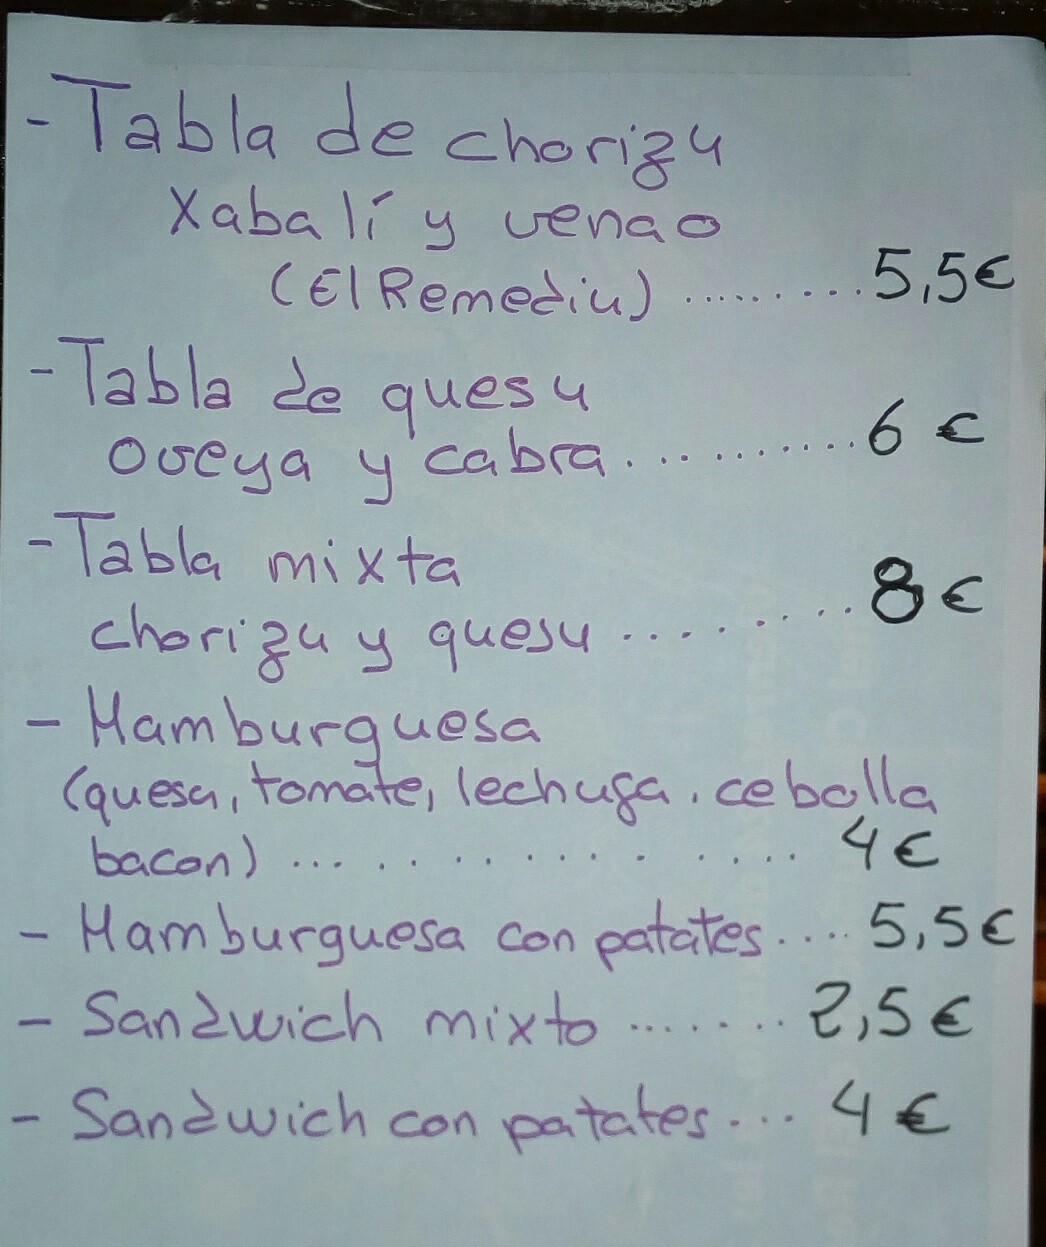 - Tabla de chorizu
Xabalí y venao
(El Remediu) ......... 5,5€
- Tabla de quesu
oveya y cabra .......... 6 €
- Tabla mixta
chorizu y quesu ........ 8 €
- Hamburguesa
(quesu, tomate, lechuga, cebolla
bacon) .............. 4€
- Hamburguesa con patates .... 5,5€
- Sandwich mixto ....... 2,5€
- Sandwich con patates ... 4 €